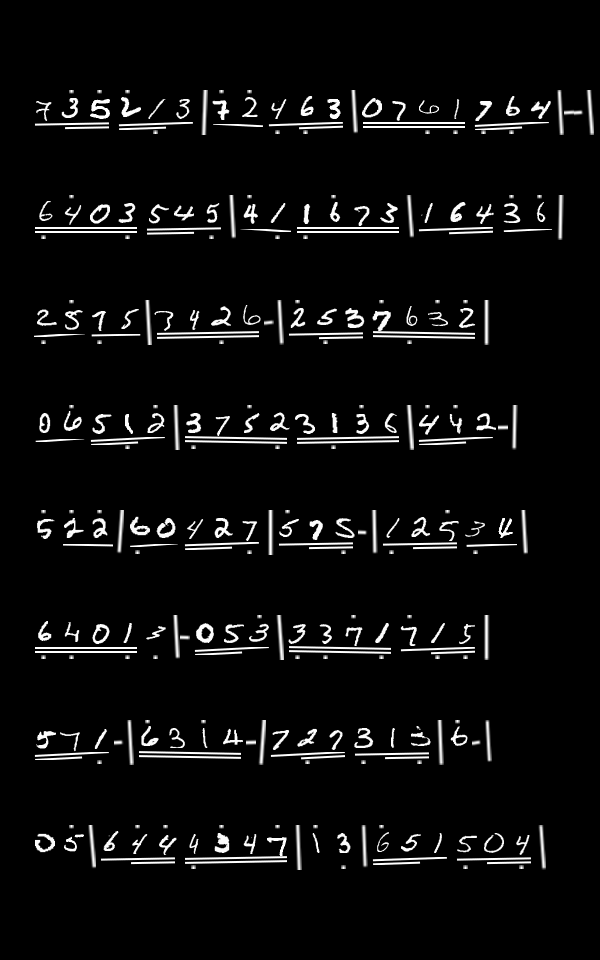 7352/3|72463|0761764-|
6403545|4/1673|/6436|
2575|3426-|2537632|
06512|37523136|442-|
522|60427|575-|12534|
64013|-053|3371715|
571-|6314-|727313|6-|
05|6444347|13|651504|